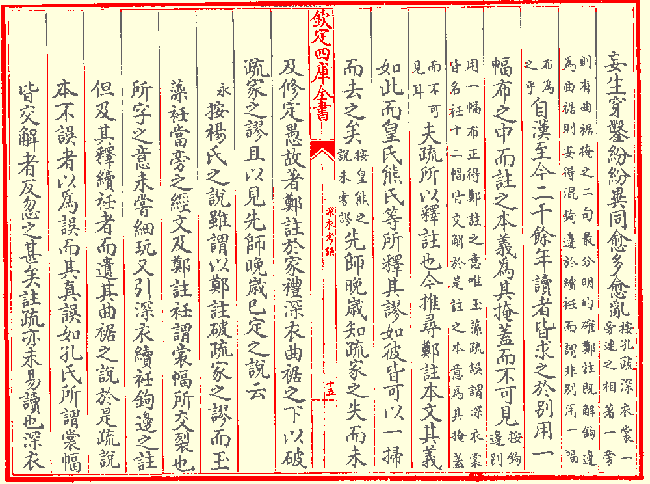 妄生穿鑿紛紛異同愈多愈亂按孔疏深衣裳一
旁連之相著一旁
則有曲裾掩之二句最分明的確鄭註既解鉤邊
為曲裾則安得混鉤邊於續衽而謂非别用一幅
布為
之乎自漢至今二千餘年讀者皆求之於别用一
幅布之中而註之本義為其掩蓋而不可見按鉤
邊别
用一幅布正得鄭註之意唯玉藻疏誤謂深衣裳
皆名衽十二幅皆交解於是註之本意為其掩蓋
而不可
見耳夫疏所以釋註也今推尋鄭註本文其義
如此而皇氏熊氏等所釋其謬如彼皆可以一掃
而去之矣按皇熊之
說未先師晚歲知疏家之失而未
欽定四庫全書
深衣考誤
十五
及修定愚故著鄭註於家禮深衣曲裾之下以破
疏家之謬且以見先師晚歲已定之說云
永按楊氏之說雖謂以鄭註破疏家之謬而玉
藻衽當旁之經文及鄭註衽謂裳幅所交裂也
所字之意未嘗細玩又引深衣續衽鉤邊之註
但及其釋續衽者而遺其曲裾之說於是疏說
本不誤者以為誤而其真誤如孔氏所謂裳幅
皆交解者反忽之甚矣註疏亦未易讀也深衣